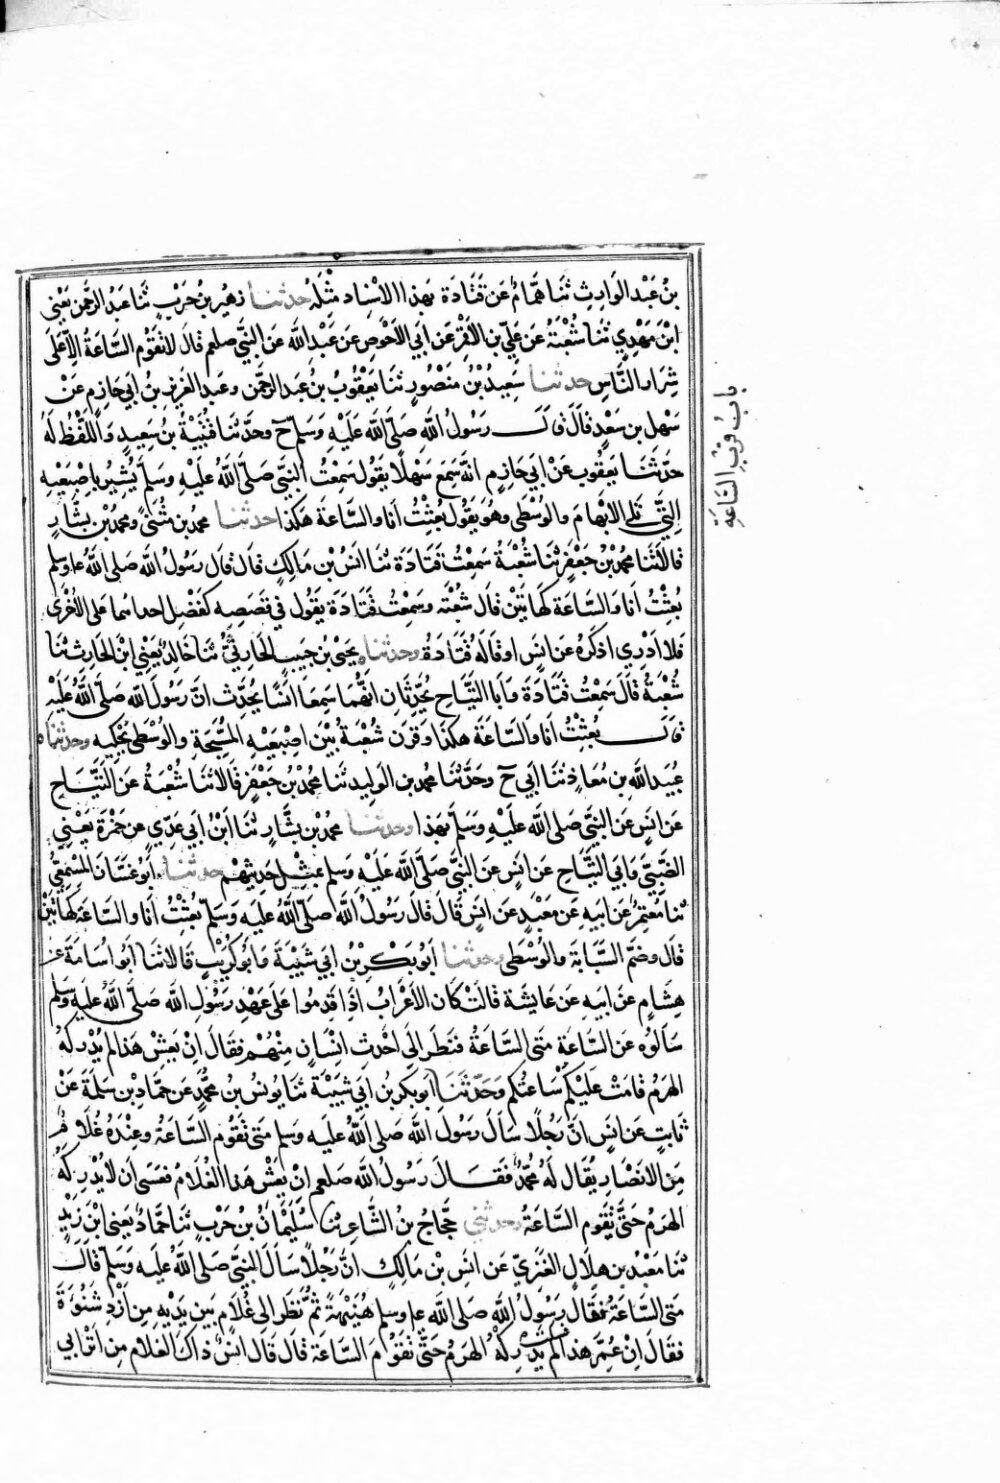 بن عبد الوارث ثنا همام عن قتادة بهذا الاسناد مثله حدثنا زهير بن حرب ثنا عبد الرحمن يعني
ابن مهدي ثنا شعبة عن علي بن الاقمر عن ابي الاحوص عن عبد الله عن النبي صلعم قال لا تقوم الساعة الا على
شرار الناس حدثنا سعيد بن منصور ثنا يعقوب بن عبد الرحمن وعبد العزيز بن ابي حازم عن
سهل بن سعد قال قال رسول الله صلى الله عليه وسلم ح وحدثنا قتيبة بن سعيد واللفظ له
حدثنا يعقوب عن ابي حازم انه سمع سهلا يقول سمعت النبي صلى الله عليه وسلم يشير باصبعيه
التي تلي الابهام والوسطى وهو يقول بعثت انا والساعة هكذا حدثنا محمد بن مثنى ومحمد بن بشار
قالا ثنا محمد بن جعفر ثنا شعبة سمعت قتادة ثنا انس بن مالك قال قال رسول الله صلى الله عليه وسلم
بعثت انا والساعة كهاتين قال شعبة وسمعت قتادة يقول في قصصه كفضل احداهما على الاخرى
فلا ادري اذكره عن انس او قاله قتادة وحدثنا يحيى بن حبيب الحارثي ثنا خالد يعني ابن الحارث ثنا
شعبة قال سمعت قتادة وابا التياح يحدثان انهما سمعا انسا يحدث ان رسول الله صلى الله عليه
قال بعثت انا والساعة هكذا وقرن شعبة بين اصبعيه المسبحة والوسطى يحكيه وحدثنا
عبيد الله بن معاذ ثنا ابي ح وحدثنا محمد بن الوليد ثنا محمد بن جعفر قالا ثنا شعبة عن التياح
عن انس عن النبي صلى الله عليه وسلم بهذا وحدثنا محمد بن بشار ثنا ابن ابي عدي عن حمزة يعني
الضبي وابي التياح عن انس عن النبي صلى الله عليه وسلم بمثل حديثهم حدثنا ابو غسان المسمعي
ثنا معتمر عن ابيه عن معبد عن انس قال قال رسول الله صلى الله عليه وسلم بعثت انا والساعة كهاتين
قال وضم السبابة والوسطى وحدثنا ابو بكر بن ابي شيبة وابو كريب قالا ثنا ابو اسامة عن
هشام عن ابيه عن عايشة قالت كان الاعراب اذا قدموا على عهد رسول الله صلى الله عليه وسلم
سالوه عن الساعة متى الساعة فنظر الى احدث انسان منهم فقال ان يعش هذا لم يدركه
الهرم قامت عليكم ساعتكم وحدثنا ابو بكر بن ابي شيبة ثنا يونس بن محمد عن حماد بن سلمة عن
ثابت عن انس ان رجلا سال رسول الله صلى الله عليه وسلم متى تقوم الساعة وعنده غلام
من الانصار يقال له محمد فقال رسول الله صلعم ان يعش هذا الغلام فعسى ان لا يدركه
الهرم حتى تقوم الساعة وحدثني حجاج بن الشاعر ثنا سليمان بن حرب ثنا حماد يعني ابن زيد
ثنا معبد بن هلال العنزي عن انس بن مالك ان رجلا سال النبي صلى الله عليه وسلم قال
متى الساعة فقال رسول الله صلى الله عليه وسلم هنيهة ثم نظر الى غلام بين يديه من ازد شنوءة
فقال ان عمر هذا لم يدركه الهرم حتى تقوم الساعة قال قال انس ذاك الغلام من اترابي
باب قرب الساعة